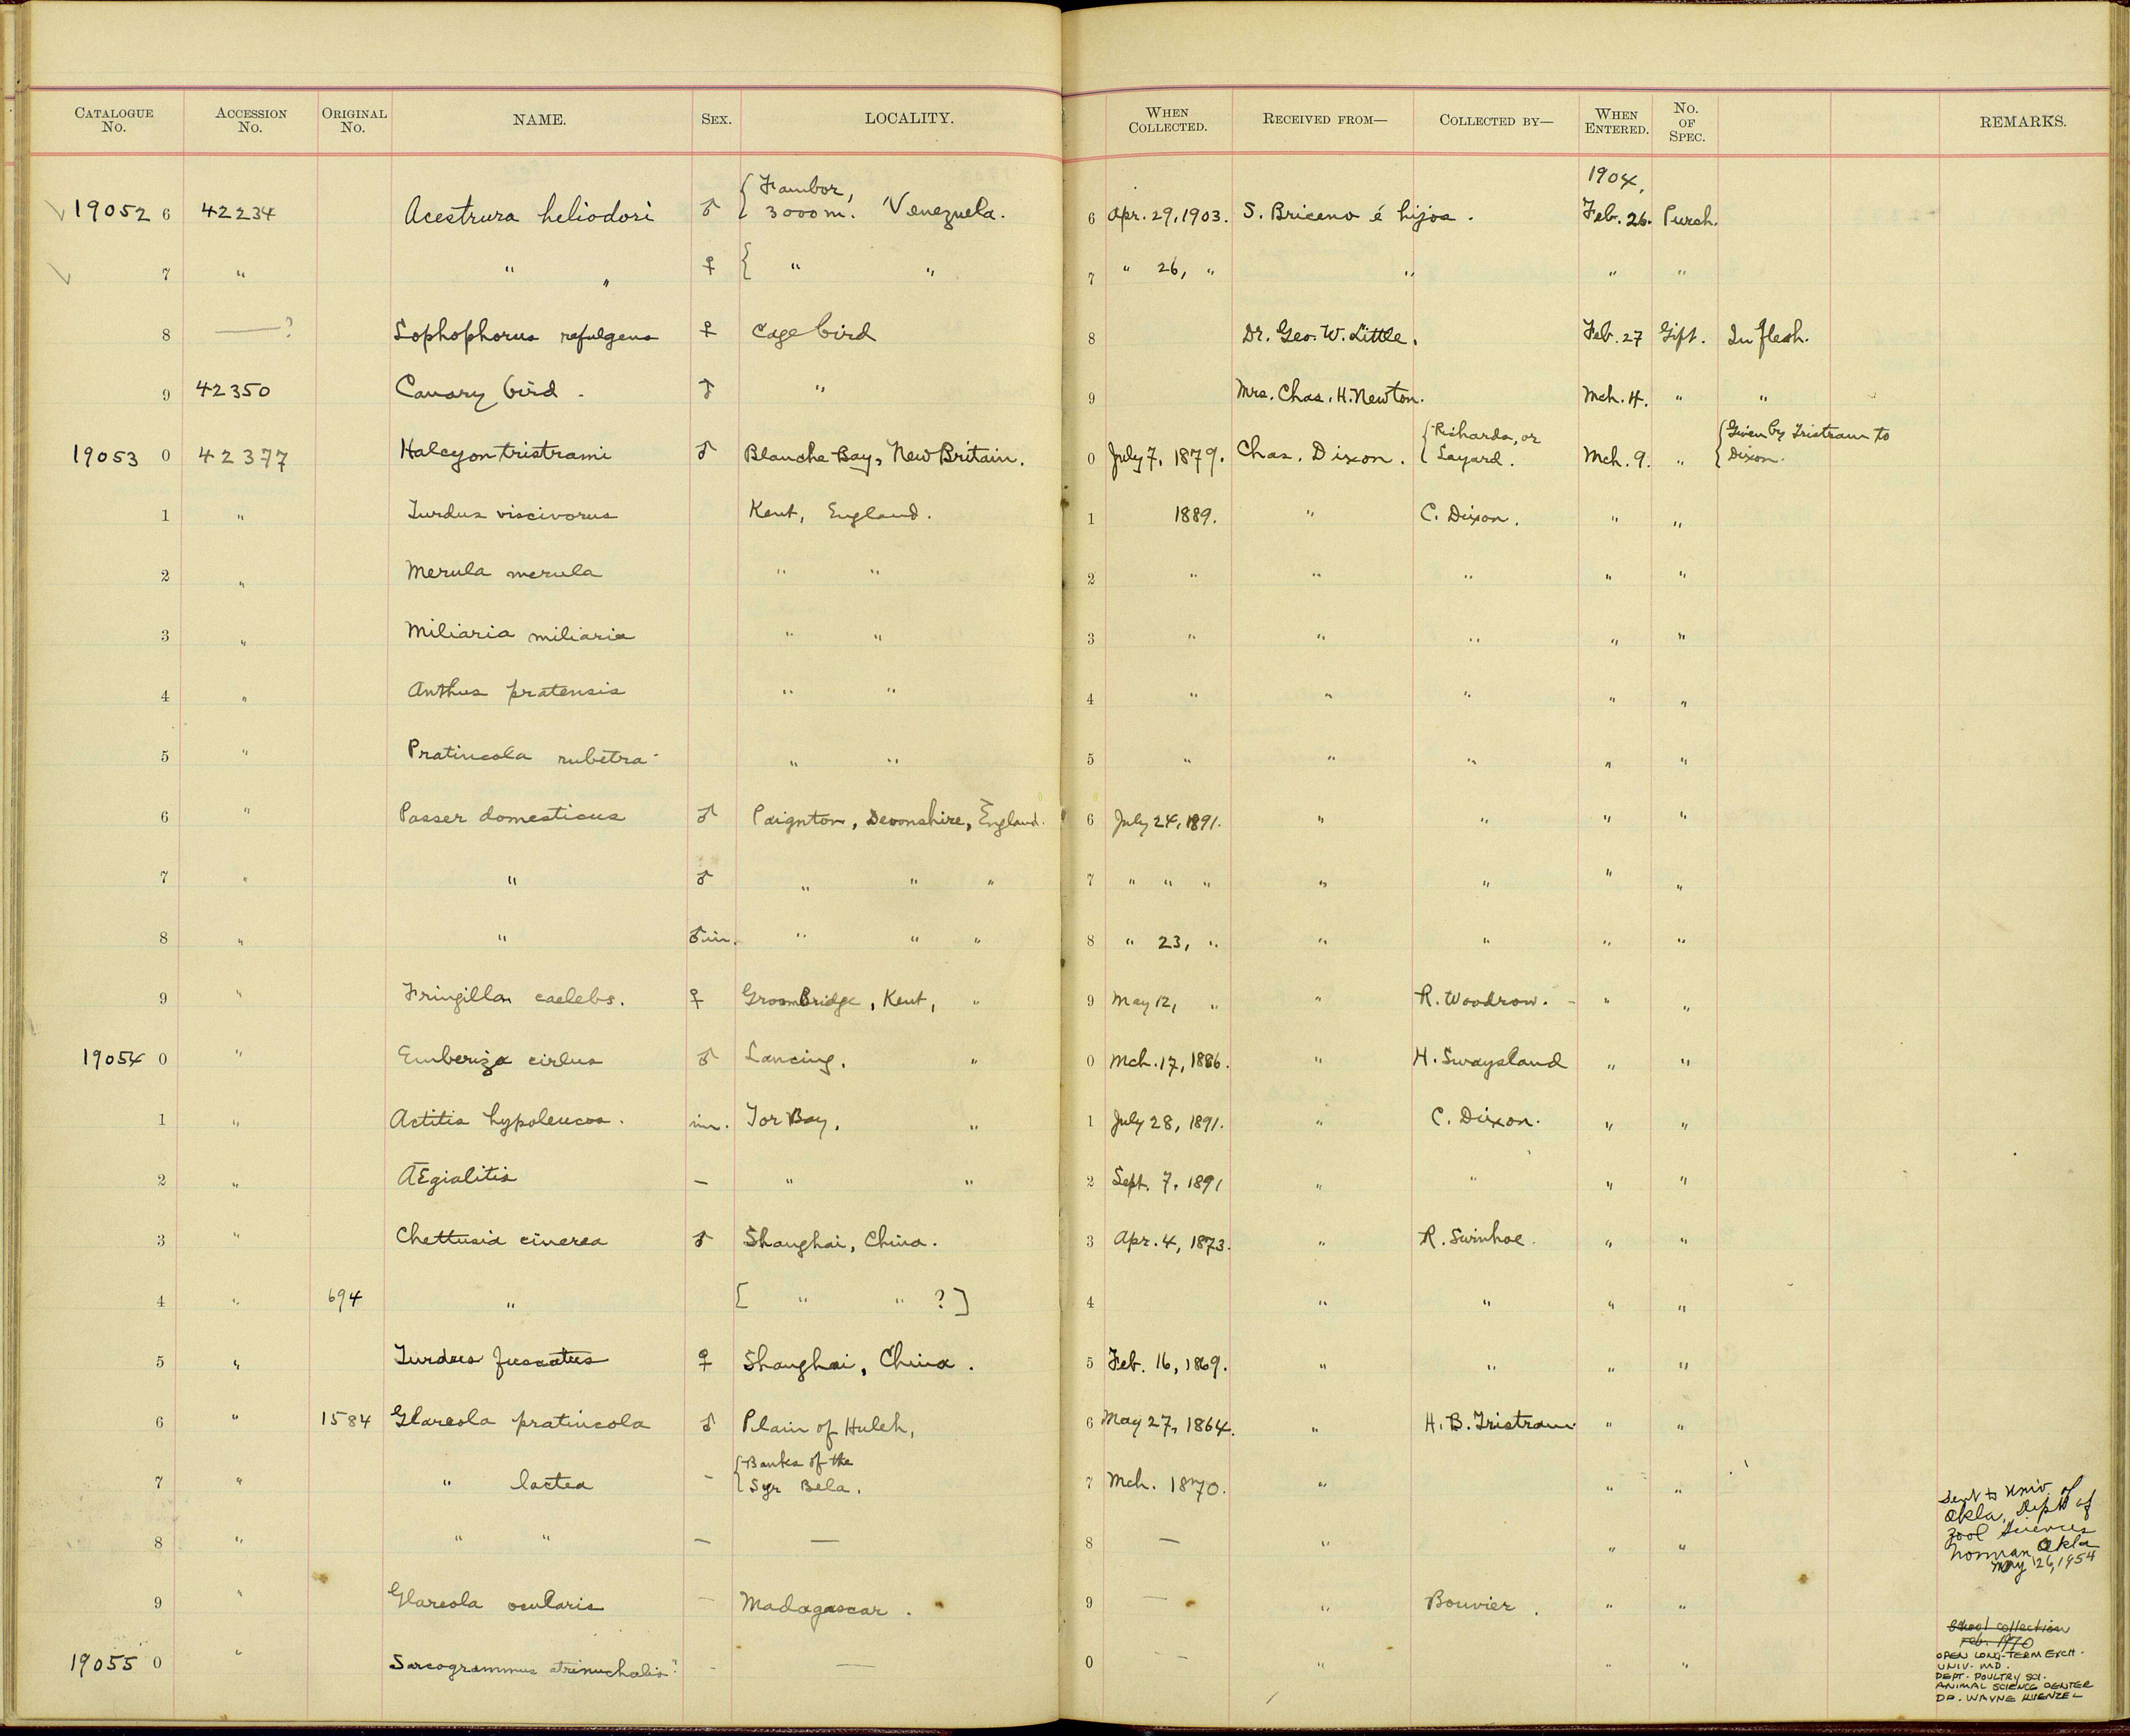 CATALOGUE No. ACCESSION No. ORIGINAL No. NAME. SEX. LOCALITY. WHEN COLLECTED. RECEIVED FROM— COLLECTED BY— WHEN ENTERED. No. OF SPEC. REMARKS.
1904,
19052 6 42234 Acestrura heliodori ♂ { 3000 m. Venezuela. 6 Apr. 29, 1903. S. Briceno é hijos. Feb. 26. Purch.
7 " " " ♀ { " " 7 " 26, " " " "
8 ——? Lophophorus refulgens ♀ Cage bird 8 Dr. Geo. W. Little. Feb. 27 Gift. In flesh.
9 42350 Canary bird. ♂ " 9 Mrs. Chas. H. Newton. Mch. 4. " "
19053 0 42377 Halcyon tristrami ♂ Blanche Bay, New Britain. 0 July 7, 1879. Chas. Dixon. { Richards, or Layard. Mch. 9. " { Given by Tristram to Dixon.
1 " Turdus viscivorus Kent, England. 1 1889. " C. Dixon. " "
2 " Merula merula " " 2 " " " " "
3 " Miliaria miliaria " " 3 " " " " "
4 " Anthus pratensis " " 4 " " " " "
5 " Pratincola rubetra " " 5 " " " " "
6 " Passer domesticus ♂ Paignton, Devonshire, England. 6 July 24, 1891. " " " "
7 " " ♂ " " " 7 " " " " " " "
8 " " ♂ im. " " " 8 " 23, " " " " "
9 " Fringilla caelebs. ♀ Groombridge, Kent, " 9 May 12, " " R. Woodrow. " "
19054 0 " Emberiza cirlus ♂ Lancing. " 0 Mch. 17, 1886. " H. Swaysland " "
1 " Actitis hypoleucos. im. Tor Bay. " 1 July 28, 1891. " C. Dixon. " "
2 " Ægialitis — " " 2 Sept. 7, 1891 " " " "
3 " Chettusia cinerea ♂ Shanghai, China. 3 Apr. 4, 1873. " R. Swinhoe. " "
4 " 694 " [ " " ? ] 4 " " " "
5 " Turdus fuscatus ♀ Shanghai, China. 5 Feb. 16, 1869. " " " "
6 " 1584 Glareola pratincola ♂ Plain of Huleh, 6 May 27, 1864. " H. B. Tristram " "
7 " " lactea - { Banks of the Syr Bela. 7 Mch. 1870. " " "
8 " " " — — 8 — " " "
Sent to Univ. of
Okla, Dept of
Zool Sciences
Norman, Okla
May 26, 1954
9 " Glareola ocularis - Madagascar. 9 — " Bouvier. " "
19055 0 " Sarcogrammus atrinuchalis? - — 0 — " " "
School collection
Feb. 1970
OPEN LONG-TERM EXCH.
UNIV. MD.
DEPT. POULTRY SCI.
ANIMAL SCIENCE CENTER
DR. WAYNE KUENZEL